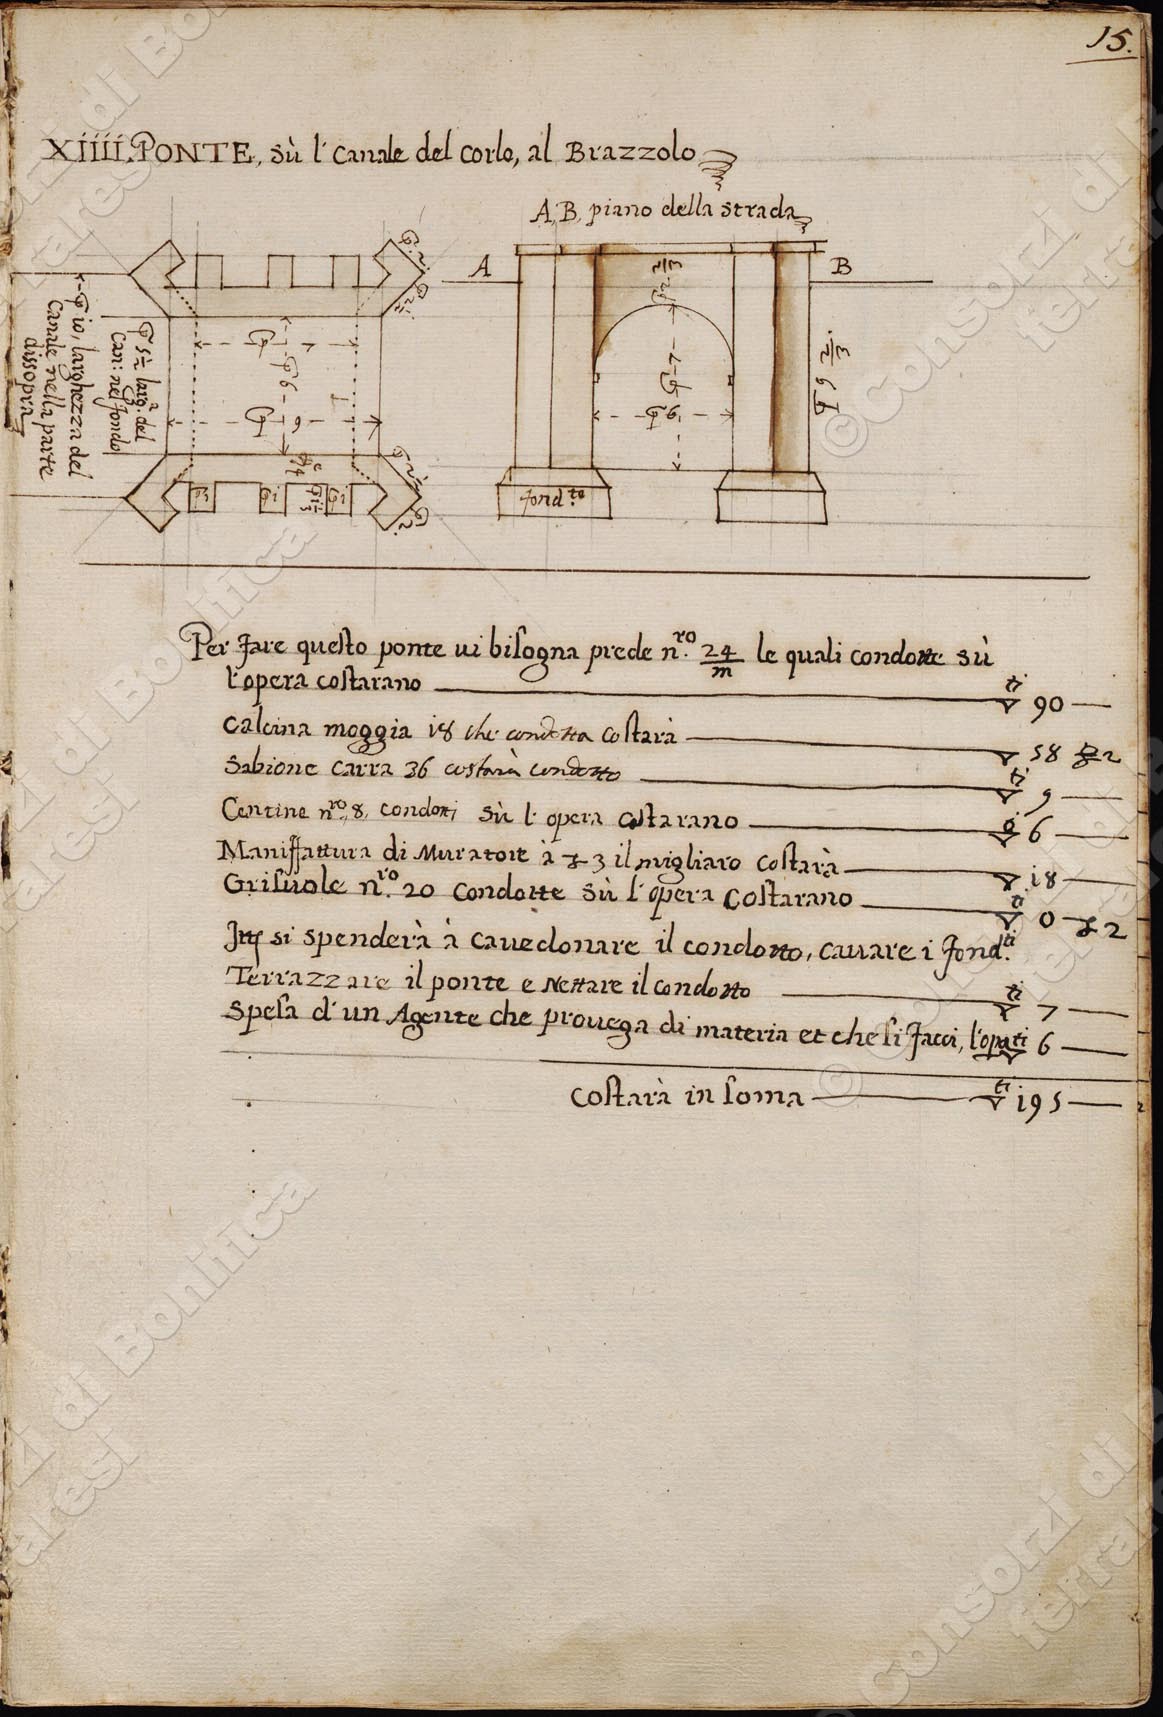 15.
XIIII. PONTE, sù l'canale del corlo, al Brazzolo
A, B, piano della strada
A
B
p. 2.
p. 2 2/3
p 10, larghezza del
canale nella parte
dissopra
p 5 1/2 larg.a del
can: nel fondo
p 7
p 6
p 9
p 7
p 6
p 9 2/3
p 1
p 1
p 1 1/3
p 1
p 2
fond.te
Per fare questo ponte vi bisogna prede n.ro 24/m le quali condotte sù
l'opera costarano ti 90 —
Calcina moggia 18 che condotta costarà 58 £ 2
Sabione carra 36 costarà condotto ti 9 —
Centine n.ro 8, condotti sù l'opera costarano 6 —
Maniffattura di Muratore à £ 3 il migliaro costarà 18 —
Grisuole n.ro 20 condotte sù l'opera costarano 0 £ 2
Itt si spenderà à cavedonare il condotto, cavare i fond.ti
Terrazzare il ponte e nettare il condotto ti 7 —
Spesa d'un Agente che provega di materia et che si facci, l'opa ti 6 —
Costarà in soma ti 195 —
© Consorzi di Bonifica
ferraresi